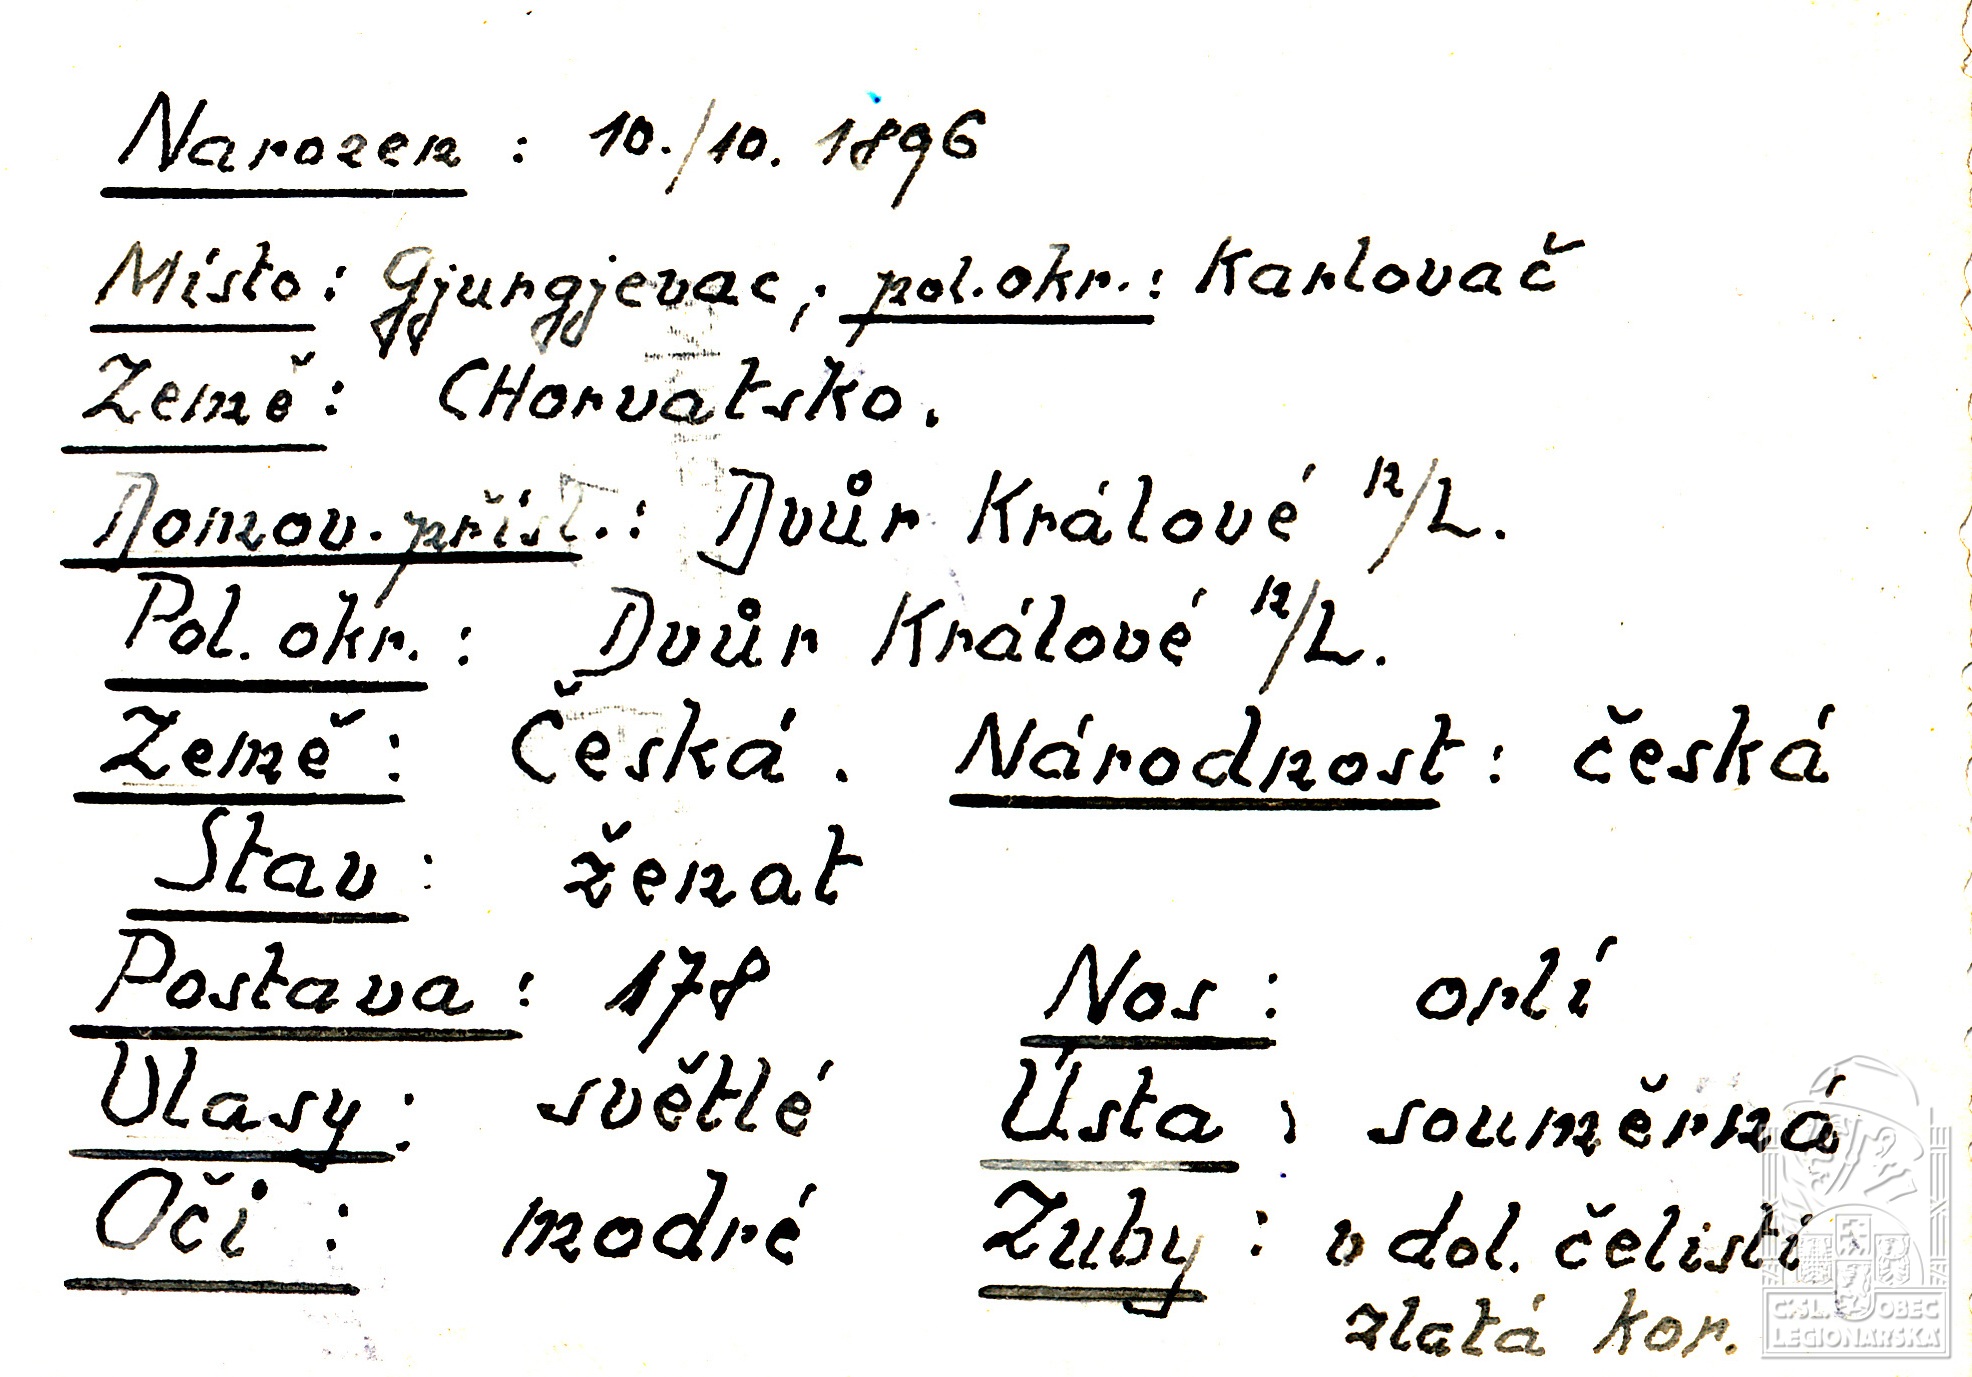 Narozen : 10./10. 1896
Místo : Gjurgjevac, pol. okr. : Karlovač
Země : CHorvatsko.
Domov. přísl. : Dvůr Králové n/L.
Pol. okr. : Dvůr Králové n/L.
Země : Česká. Národnost : česká
Stav : ženat
Postava : 178 Nos : orlí
Vlasy : světlé Ústa : souměrná
Oči : modré Zuby : v dol. čelisti
zlatá kor.
ČSL. OBEC
LEGIONÁŘSKÁ